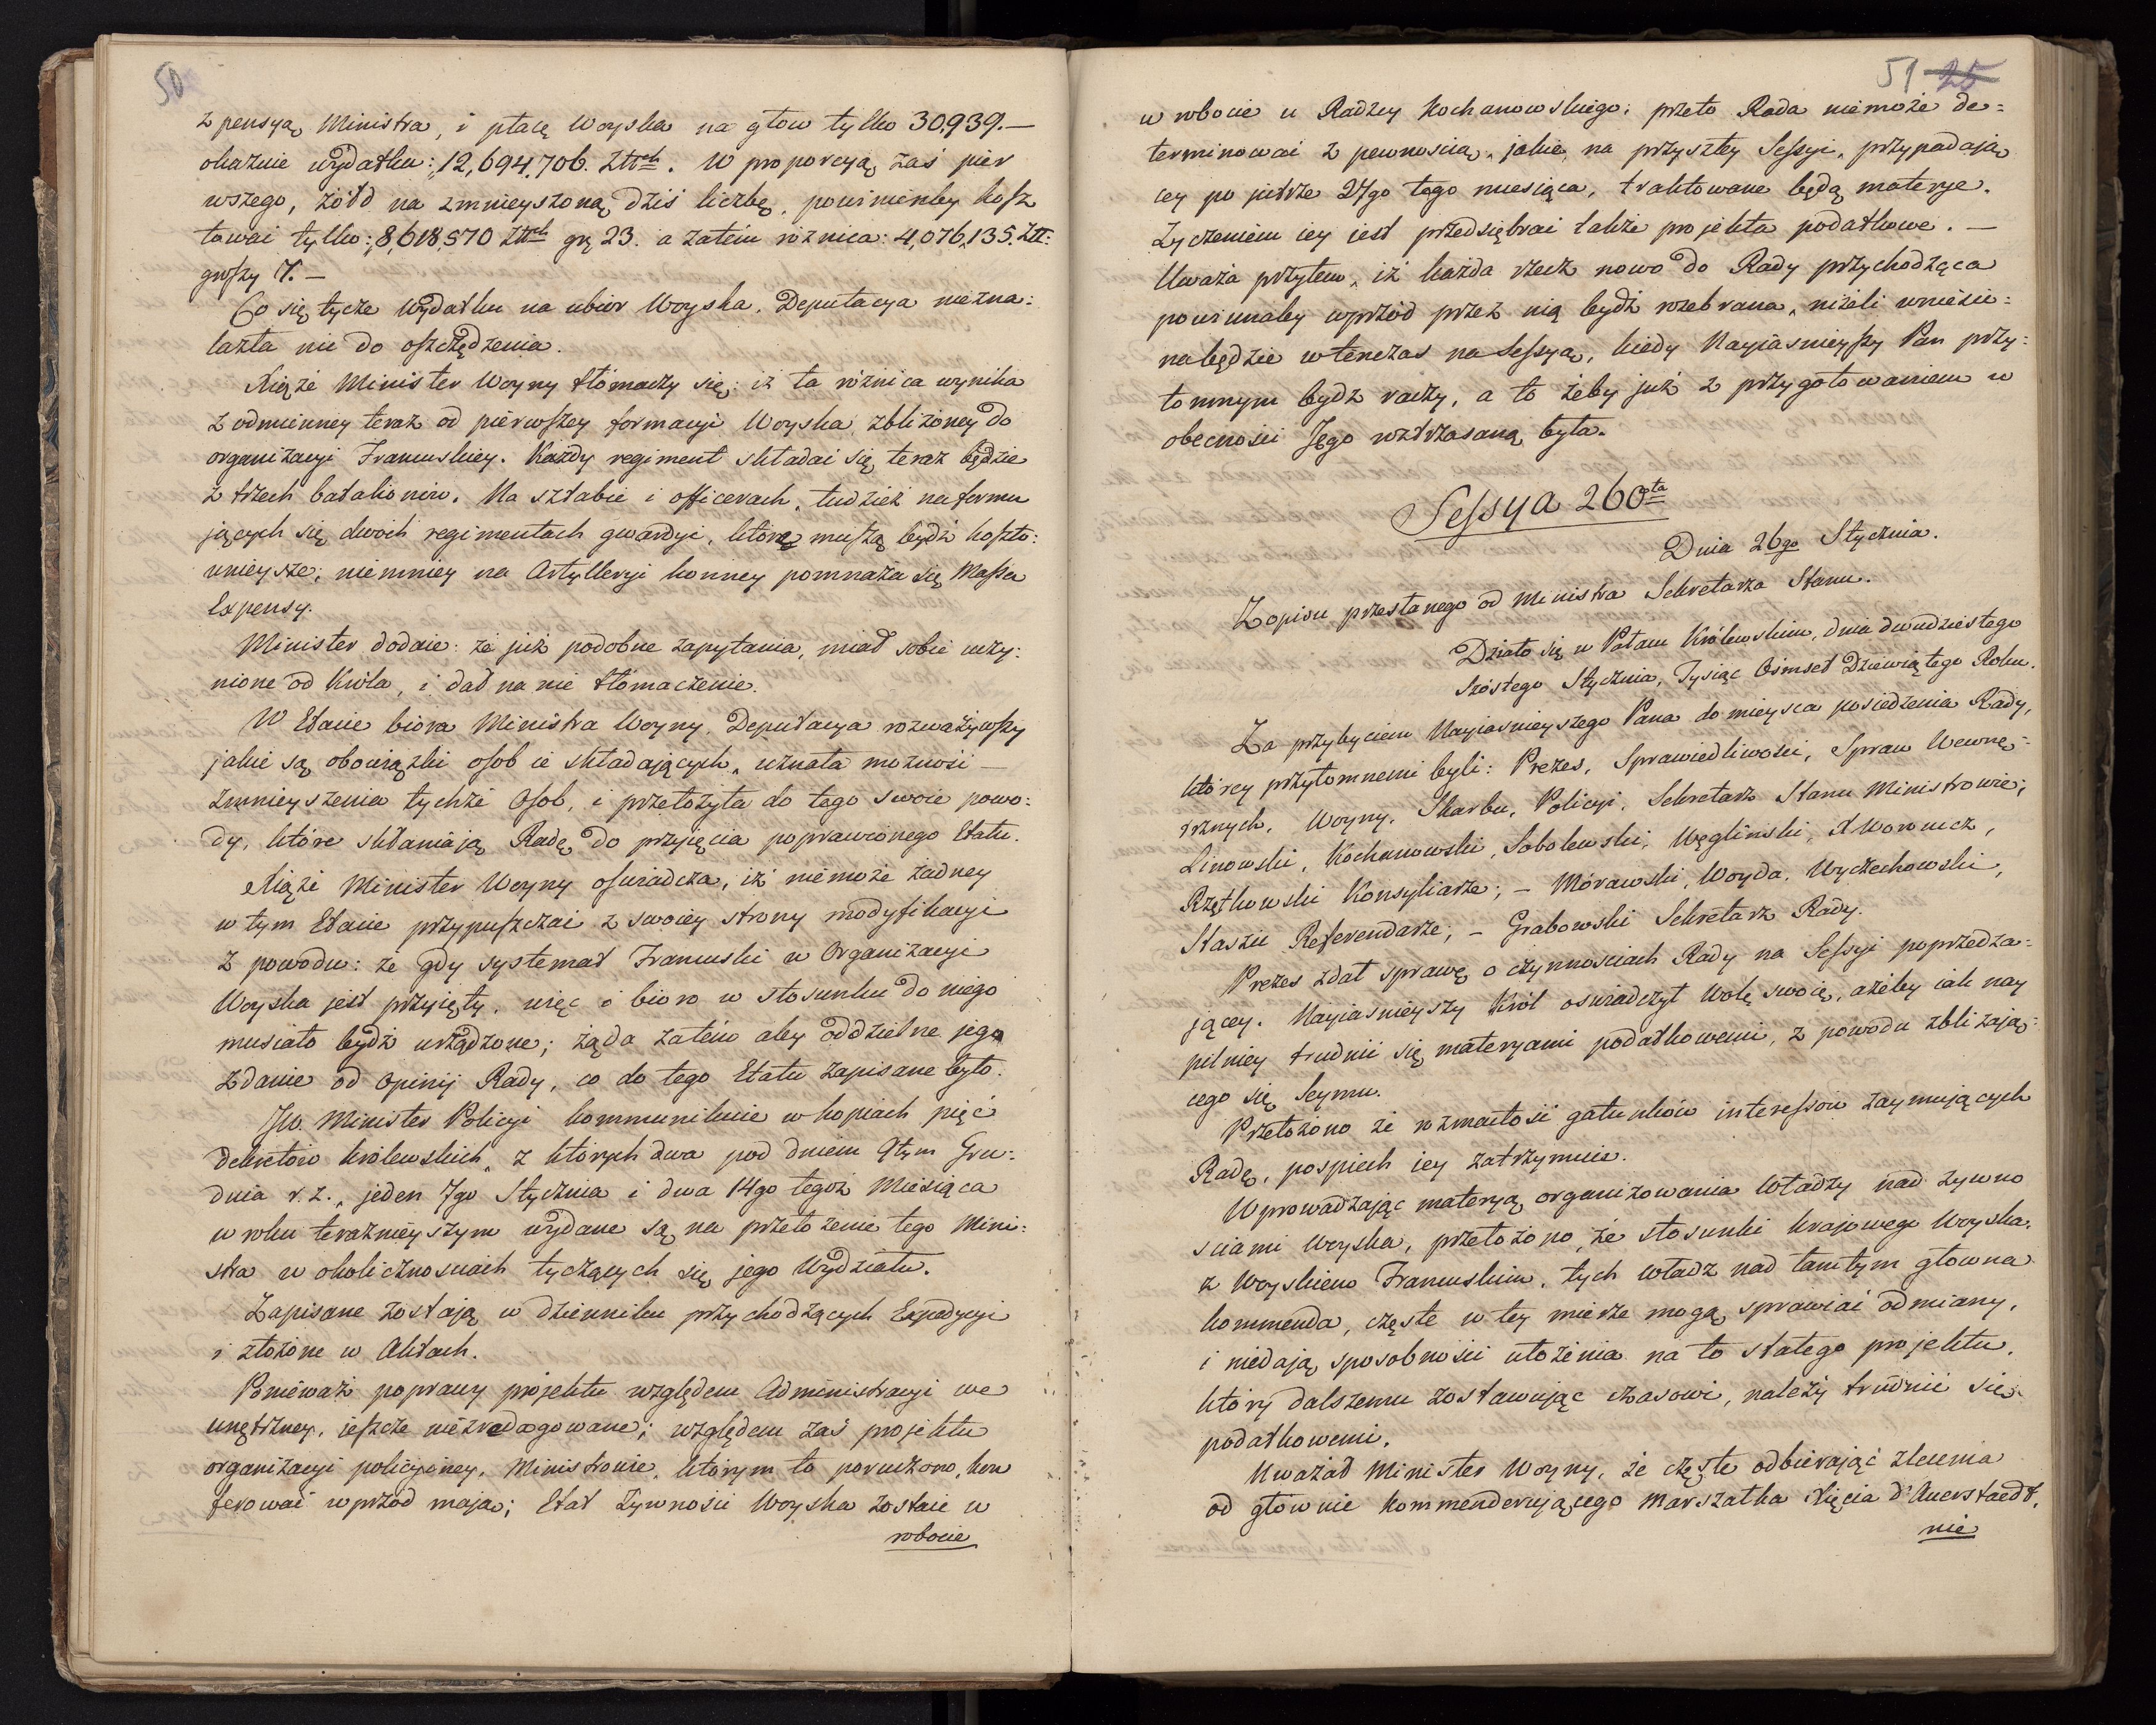 50
z pensyą Ministra, i płacę Woyska na głow tylko 30,939.—
okazuie wydatku: 12,694,706. Złtch. W proporcyą zaś pier
wszego, żołd na zmnieyszoną dziś liczbę, powinienby kosz
tować tylko: 8,618,570 Złtch gr 23. a zatém różnica: 4,076,135. Złt:
groszy 7.—
Co się tycze wydatku na ubior Woyska, Deputacya nieżna:
lazła nic do oszczędzenia.
Xiąże Minister Woyny tłómaczy się: iż ta różnica wynika
z odmienney teraz od pierwszey formacyi Woyska, zbliżoney do
organizacyi Francuskiey. Każdy regiment składać się teraz będzie
z trzech batalionów. Na sztabie i officerach, tudzież na formu
jących się dwóch regimentach gwardyi, które muszą bydź koszto:
wnieysze; niemniey na Artylleryi konney pomnaża się Massa
Expensy.
Minister dodaie: że już podobne zapytania, miał sobie uczy:
nione od Króla, i dał na nie tłómaczenie.
W Etacie biora Ministra Woyny, Deputacya rozważywszy
jakie są obowiązki osob ie składających, uznała możność —
zmnieyszenia tychże Osob, i przełożyła do tego swoie powo:
dy, które skłaniają Radę do przyjęcia poprawionego Etatu.
Xiąże Minister Woyny oświadcza, iż niemoże żadney
w tym Etacie przypuszczać z swoiey strony modyfikacyi
z powodu: że gdy systemat Francuski w Organizacyi
Woyska jest przyięty, więc i bioro w stosunku do niego
musiało bydź urządzone; żąda zatém aby oddzielne jego
zdanie od Opinij Rady, co do tego Etatu zapisane było.
JW. Minister Policyi kommunikuie w kopiach pięć
dekretów królewskich, z których dwa pod dniem 9tym Gru:
dnia r. z., jeden 7go Stycznia i dwa 14go tegoż Miesiąca
w roku teraznieyszym wydane są na przełożenie tego Mini:
stra w okolicznościach tyczących się jego Wydziału.
Zapisane zostają w dzienniku przychodzących Expedycyi
i złożone w Aktach.
Ponieważ poprawy projektu względem Administracyi we
wnętrzney, jeszcze niezredagowane; względem zaś projektu
organizacyi policyiney, Ministrowie, którym to poruczono, kon
ferować wprzód mają; Etat Żywności Woyska zostaie w
robocie
51 25
w robocie u Radzcy Kochanowskiego: przeto Rada niemoże de=
terminować z pewnością, jakie, na przyszłey Sessyi, przypadają
cey po jutrze 27go tego miesiąca, traktowane będą materye.
Życzeniem iey iest przedsiębrać także projekta podatkowe. —
Uważa przytem, iż każda rzecz nowo do Rady przychodząca
powinnaby wprzód przez nią bydź rozebrana, niżeli wniésio=
na będzie wtenczas na Sessyą, kiedy Nayiaśnieyszy Pan przy:
tomnym bydz raczy, a to żeby już z przygotowaniem w
obecności Jego roztrząsaną była.
Sessya 260ta
Dnia 26go Stycznia.
Z opisu przesłanego od Ministra Sekretarza Stanu.
Działo się w Pałacu Królewskim, dnia dwudziestego
szóstego Stycznia, Tysiąc Ośmset Dziewiątego Roku.
Za przybyciem Nayiaśnieyszego Pana do mieysca posiedzenia Rady,
którey przytomnemi byli: Prezes, Sprawiedliwości, Spraw Wewnę=
trznych, Woyny, Skarbu, Policyi, Sekretarz Stanu Ministrowie;
Linowski, Kochanowski, Sobolewski, Węgliński, X Woronicz,
Rzętkowski Konsyliarze; — Mórawski, Woyda, Wyczechowski,
Staszic Referendarze; — Grabowski Sekretarz Rady.
Prezes zdał sprawę o czynnościach Rady na Sessyi poprzedza=
jącey. Nayiaśnieyszy Król oświadczył Wolę swoię, ażeby iak nay
pilniey trudnić się materyami podatkowemi, z powodu zbliżają=
cego się Seymu.
Przełożono że rozmaitość gatunków interessów zaymujących
Radę, pospiech iey zatrzymuie.
Wprowadzając materyą organizowania Władzy nad żywno
sciami Woyska, przełożono, że stosunki krajowego Woyska,
z Woyskiem Francuskim, tych Władz nad tamtym główna
kommenda, częste w tey mierze mogą sprawiać odmiany,
i niedają sposobności ułożenia na to stałego projektu,
który dalszemu zostawując czasowi, należy trudnić się
podatkowemi.
Uważał Minister Woyny, że częste odbierając zlecenia
od główno kommenderującego Marszałka Xięcia d'Auerstaedt,
nie